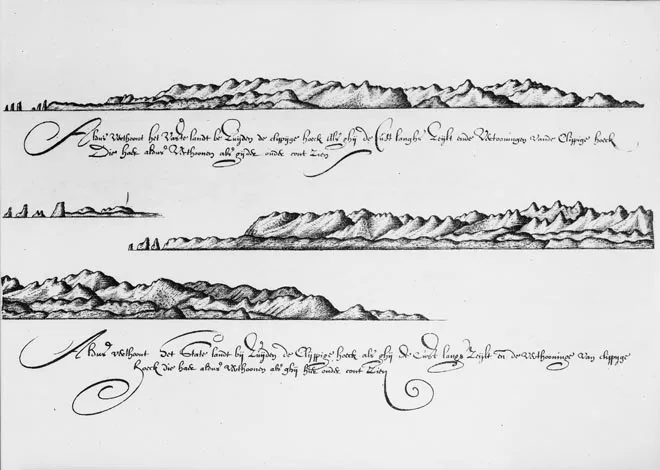 Aldus verthoont het Vaste landt be Zuijden de clippyge hoeck als ghij de Cust langhs zeijlt ende vertooningen vande Clippige hoeck
Die haer aldus verthoonen als gijde onde cont zien
Aldus verthoont Het State landt bij Zuijden de Clippige hoeck als ghij de Cust langs zeijlt en de verthooninge van clippyge
Hoeck die haer aldus verthoonen als ghij haer onde cont zien